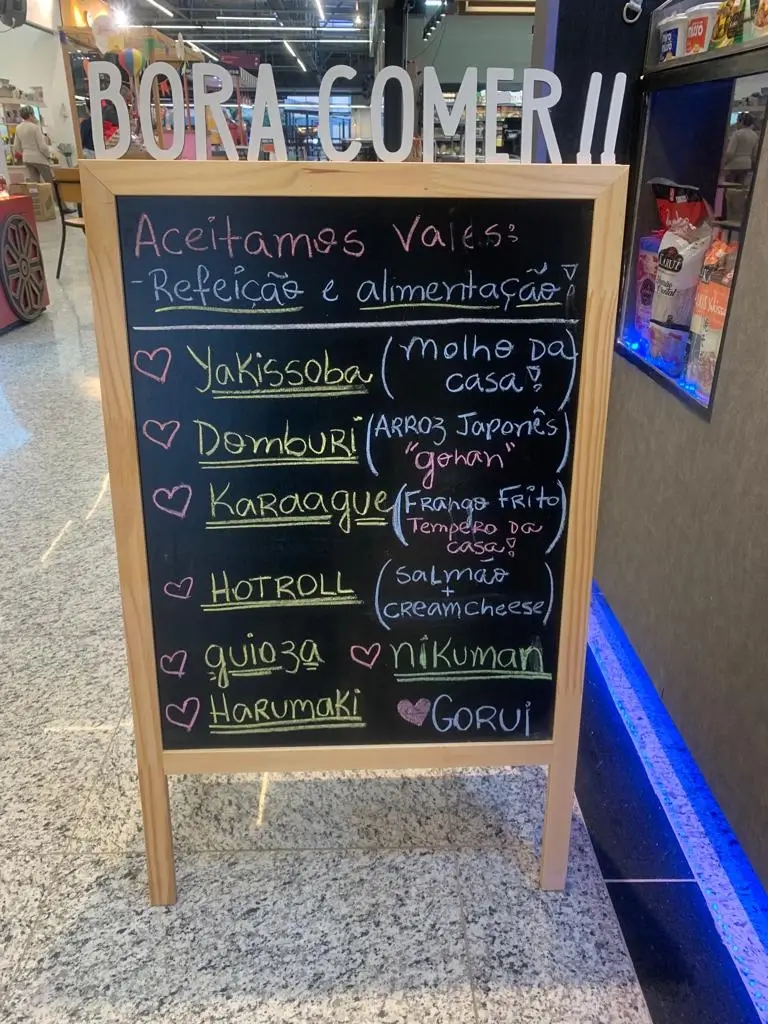 BORA COMER!!
Aceitamos Vales:
-Refeição e alimentação!
Yakissoba (molho da
casa!)
Domburi (Arroz Japonês
"gohan")
Karaague (Frango Frito
Tempero da
casa!)
HOTROLL (salmão
+
creamcheese)
guioza nikuman
Harumaki GORUJ